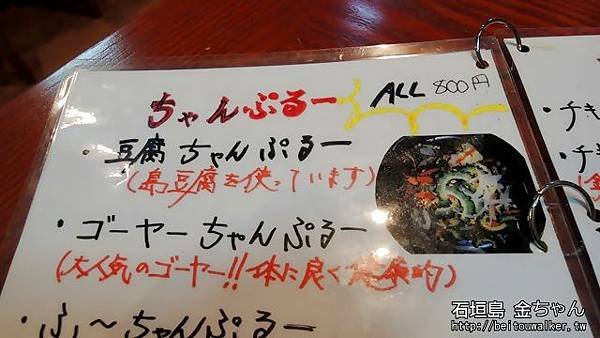 ちゃんぷるー ALL 800円
・豆腐ちゃんぷるー
(島豆腐を使っています)
・ゴーヤーちゃんぷるー
(大人気のゴーヤー!!体に良く健康的)
・ふ〜ちゃんぷるー
・チキ
・チキ
石垣島 金ちゃん
http://beitouwalker.tw